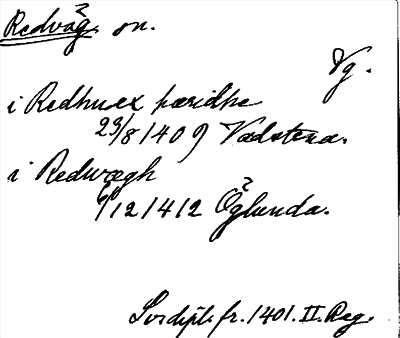 Redvåg sn.
Vg.
i Redhuex hæridhe
23/8 1409 Vadstena.
i Redwægh
6/12 1412 Öglunda.
Sv. dipl. fr. 1401. II. Reg.